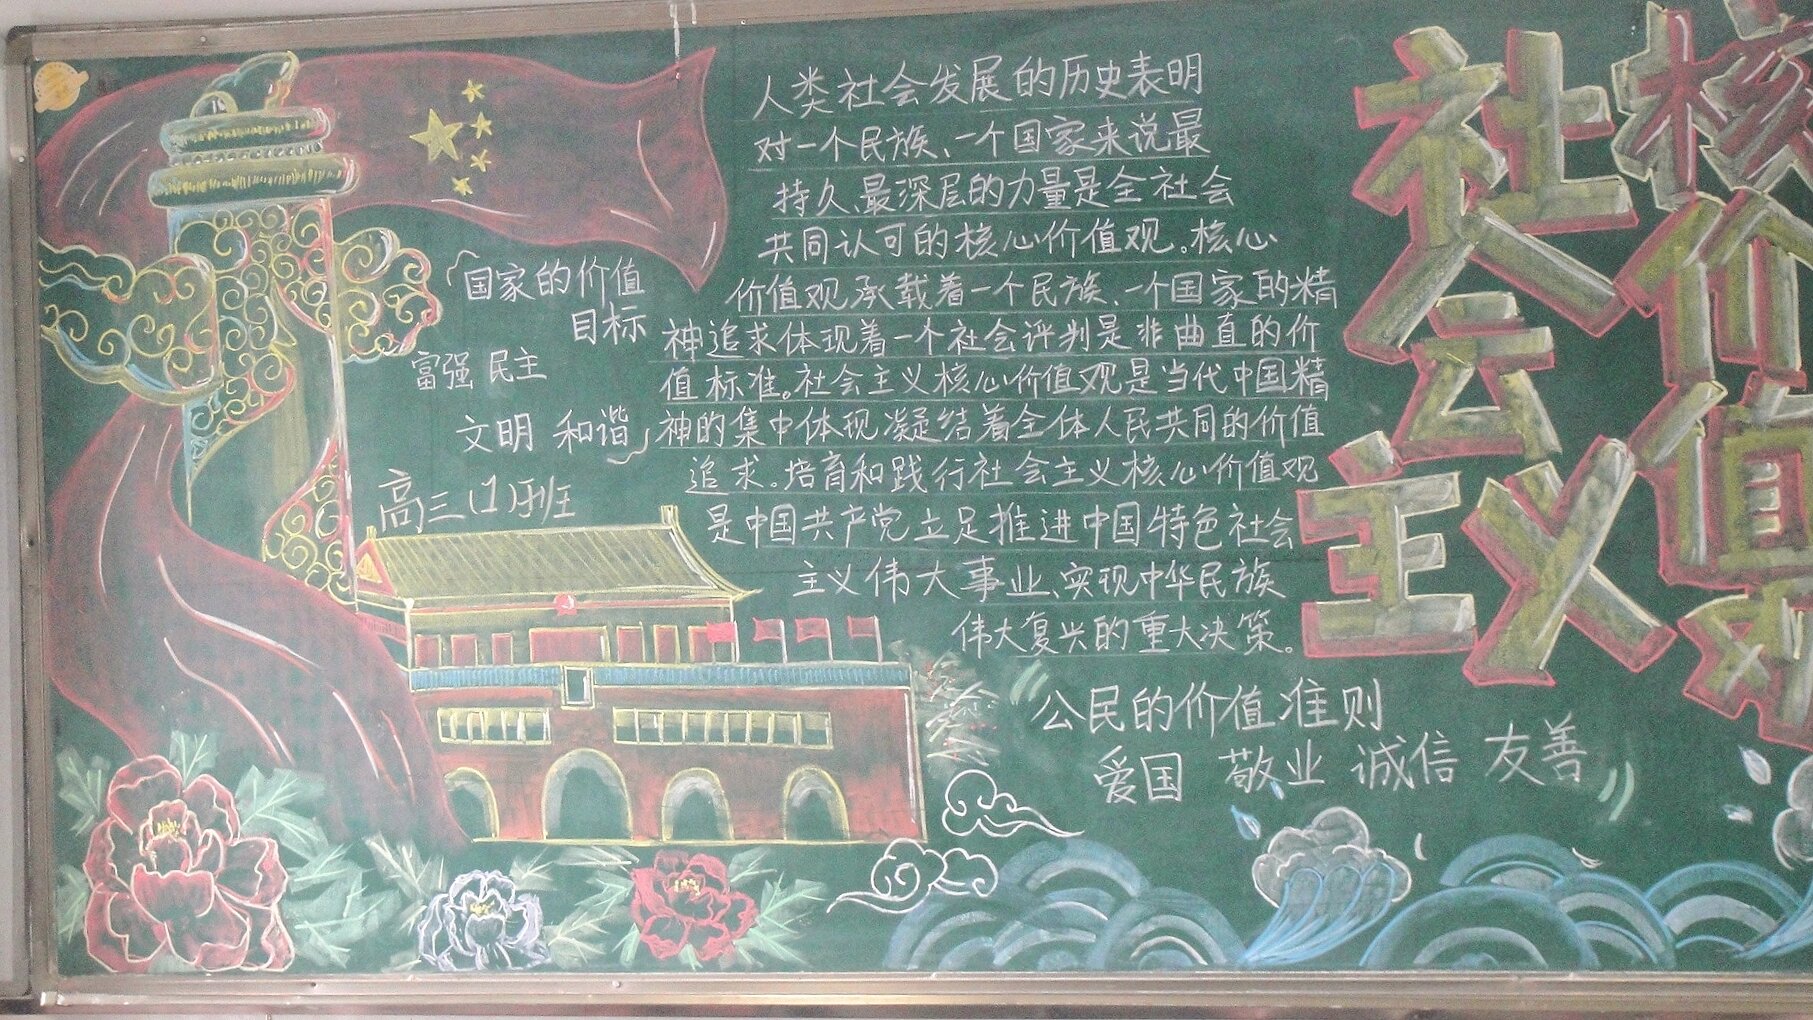 国家的价值
目标
富强 民主
文明 和谐
高三(1)班
人类社会发展的历史表明
对一个民族、一个国家来说最
持久、最深层的力量是全社会
共同认可的核心价值观。核心
价值观承载着一个民族、一个国家的精
神追求体现着一个社会评判是非曲直的价
值标准。社会主义核心价值观是当代中国精
神的集中体现凝结着全体人民共同的价值
追求。培育和践行社会主义核心价值观
是中国共产党立足推进中国特色社会
主义伟大事业、实现中华民族
伟大复兴的重大决策。
公民的价值准则
爱国 敬业 诚信 友善
社会主义
核价值观